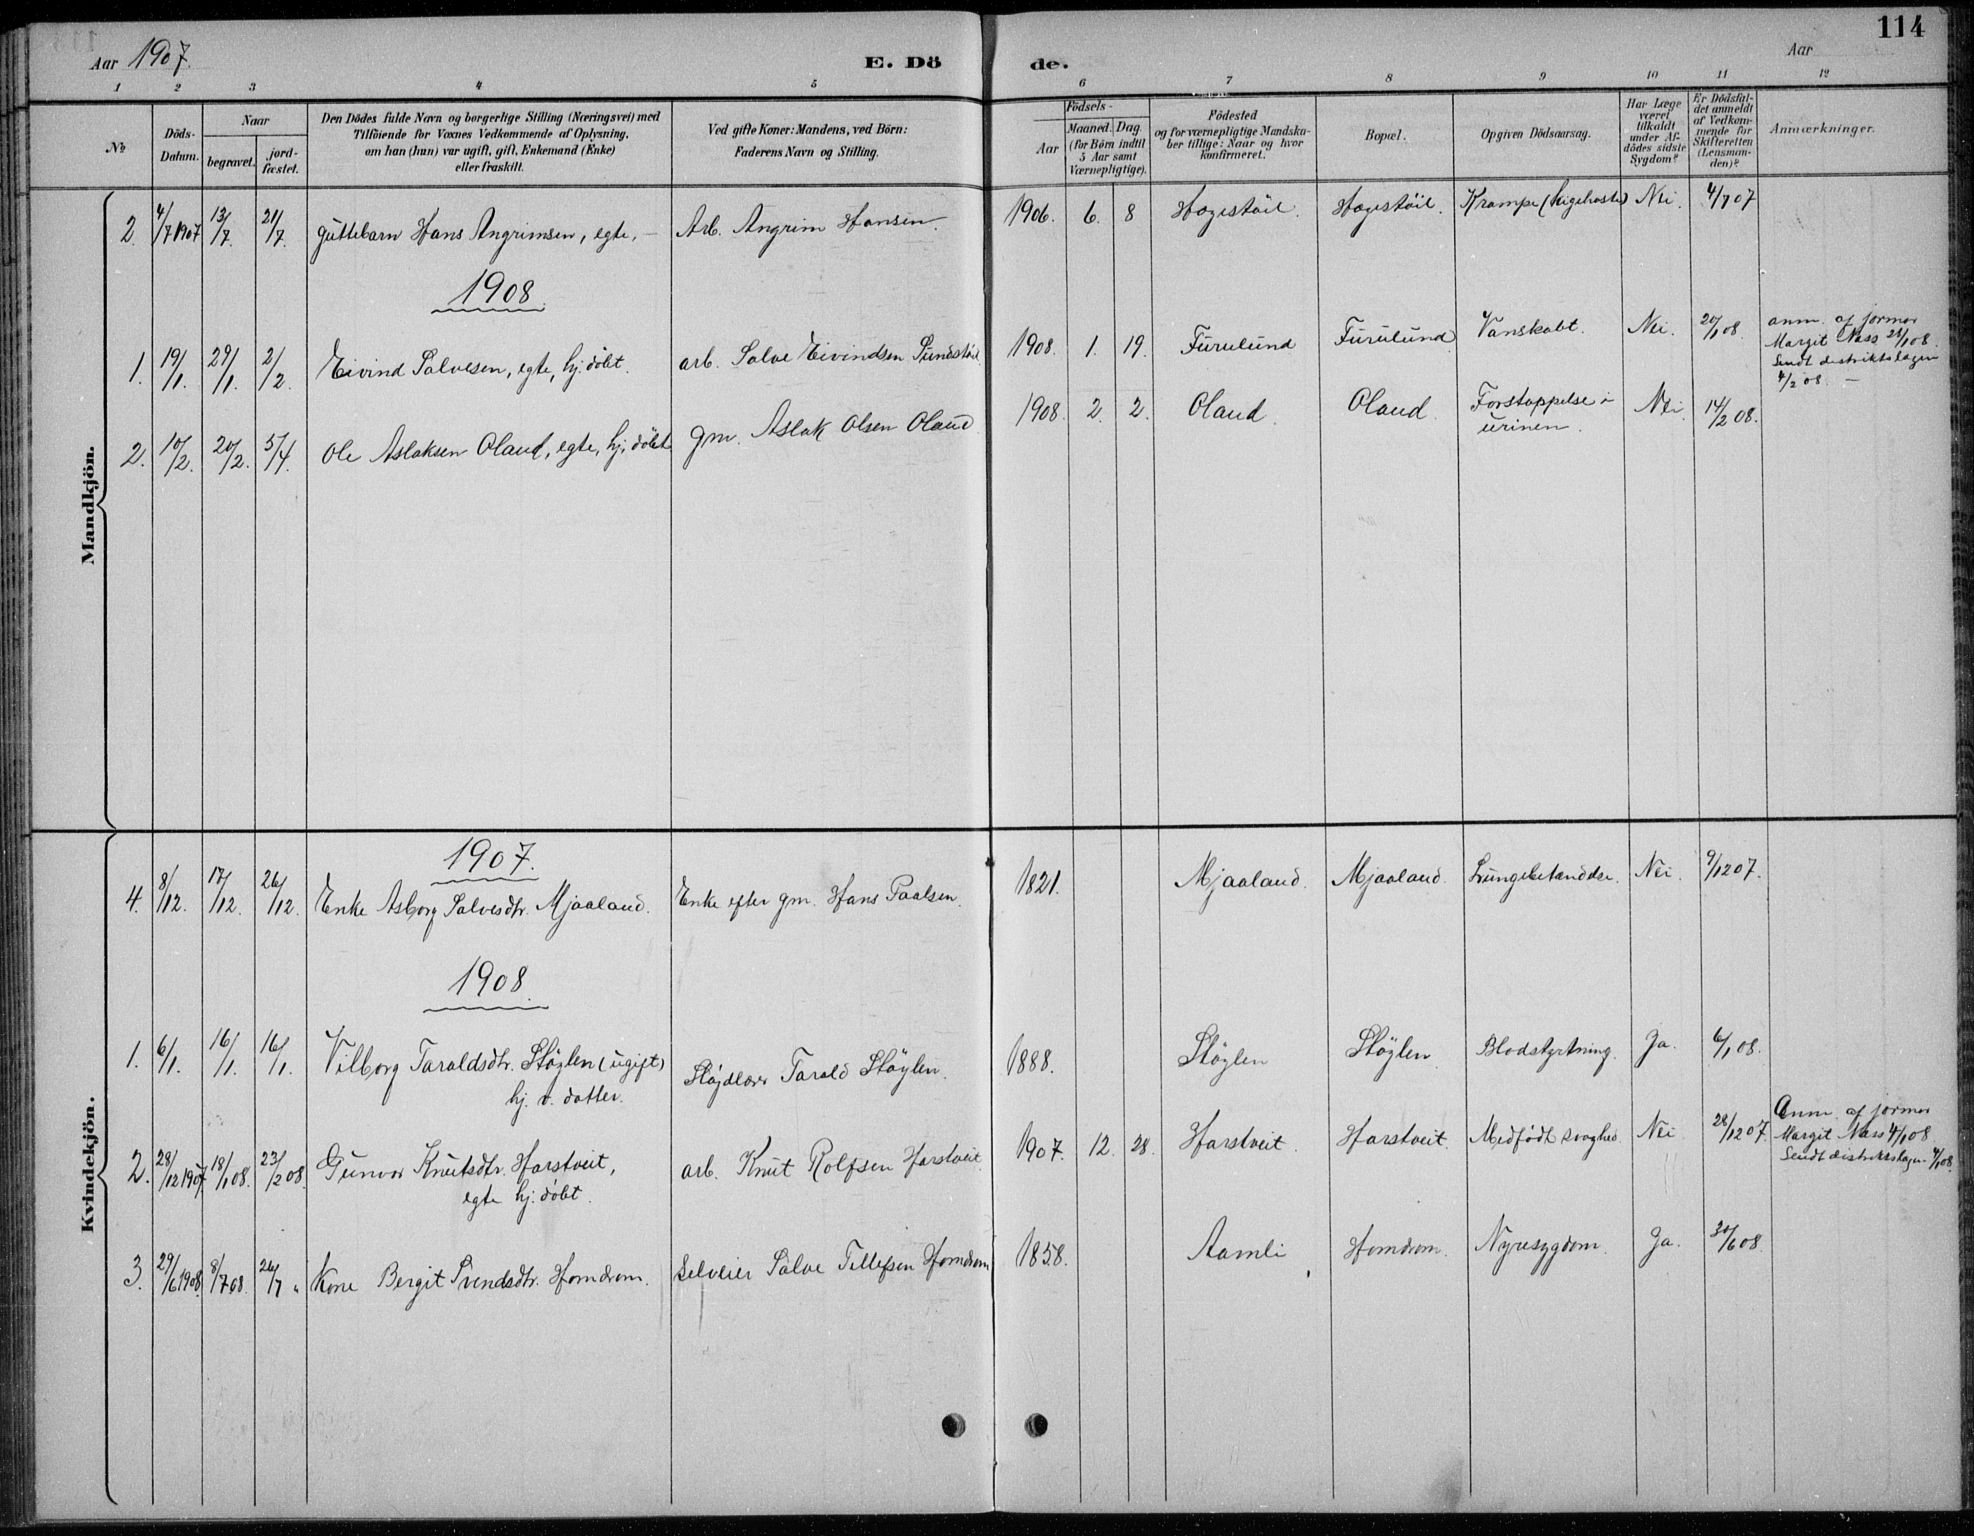 114
Aar 1907.
E. Dö
de.
Aar
1 2 3 4 5 6 7 8 9 10 11 12
No
Döds-
Datum.
Naar
begravet.
jord-
fæstet.
Den Dödes fulde Navn og borgerlige Stilling (Næringsvei) med
Tilföiende for Voxnes Vedkommende af Oplysning,
om han (hun) var ugift, gift, Enkemand (Enke)
eller fraskilt.
Ved gifte Koner: Mandens, ved Börn:
Faderens Navn og Stilling.
Födsels-
Aar
Maaned. Dag
(for Börn indtil
5 Aar samt
Værnepligtige).
Födested
og for værnepligtige Mandska-
ber tillige: Naar og hvor
konfirmeret.
Bopæl.
Opgiven Dödsaarsag.
Har Læge
været
tilkaldt
under Af-
dödes sidste
Sygdom?
Er Dödsfal-
det anmeldt
af Vedkom-
mende for
Skifteretten
(Lensman-
den)?
Anmærkninger.
Mandkjön.
2. 4/7 1907 13/7. 21/7. Guttebarn Hans Angrimsen, egte, — Arb. Angrim Hansen. 1906. 6. 8 Hægestöil. Hægestöil. Krampe (kighoste) Nei. 4/7 07
1908.
1. 19/1. 29/1. 2/2. Eivind Salvesen, egte, hj. döbt. arb. Salve Eivindsen 1908. 1. 19. Furulund Furulund Vanskabt. Nei. 20/1 08
anm. af jormor
Margit Næss 21/1 08.
Sendt distriktslægen
4/2 08. —
2. 10/2. 20/2. 5/4. Ole Aslaksen Oland, egte, hj. döbt gm. Aslak Olsen Oland 1908. 2. 2. Oland. Oland. Forstoppelse i
urinen. Nei. 14/2 08.
Kvindekjön.
1907.
4. 8/12. 17/12. 26/12. Enke Asborg Salvesdtr. Mjaaland. Enke efter gm. Hans Paalsen. 1821. Mjaaland. Mjaaland. Lungebetændelse. Nei. 9/12 07.
1908.
1. 6/1. 16/1. 16/1. Vilborg Taraldsdtr. Stöylen (ugift)
hj. v. datter. Slöjdlærer Tarald Stöylen. 1888. Stöylen Stöylen. Blodstyrtning. Ja. 6/1 08.
2. 28/12 1907 18/1 08. 23/2 08. Gunvor Knutsdtr. Harstveit,
egte hj. döbt. arb. Knut Rolfsen Harstveit. 1907. 12. 28. Harstveit. Harstveit. Medfödt svaghed. Nei 28/12 07.
Anm. af jormor
Margit Næss 4/1 08
Sendt distriktslægen 4/1 08.
3. 29/6 1908. 8/7 08. 26/7 " Kone Bergit Svendsdtr. Homdrom. Selveier Salve Tellefsen Homdrom 1858. Aamli Homdrom. Nyresygdom. Ja. 30/6 08.